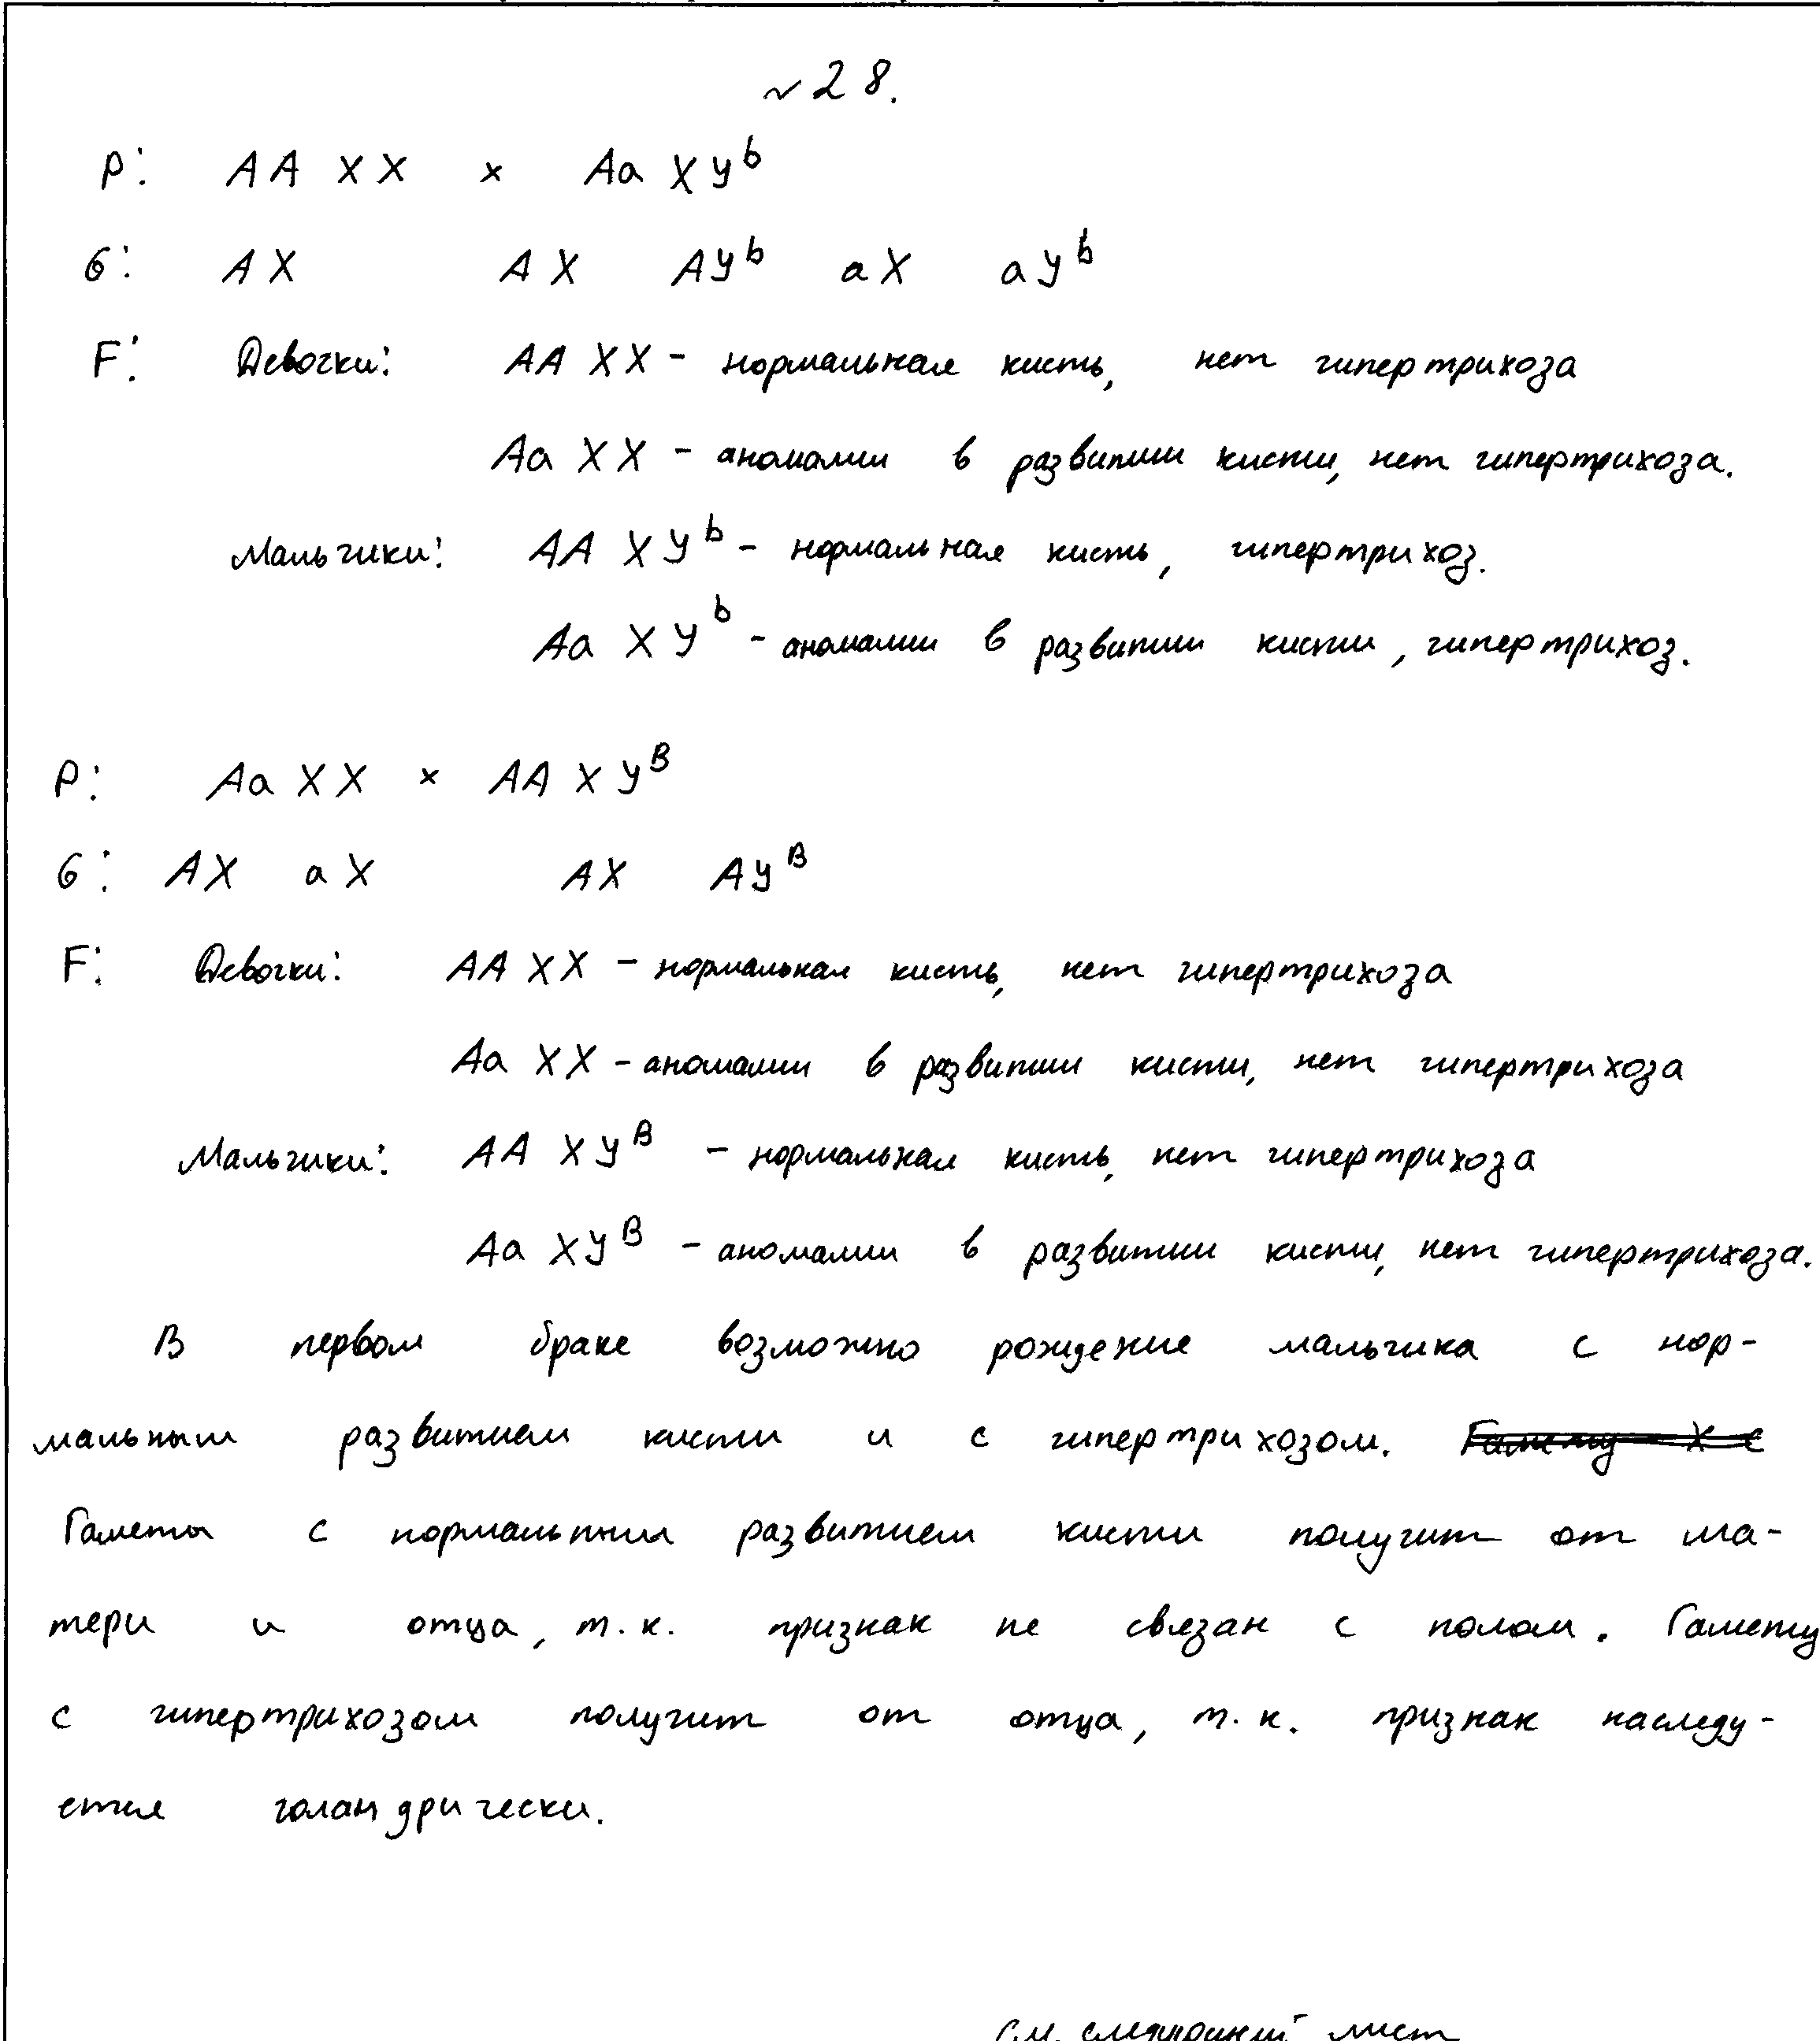 № 28.
P: AA XX × Aa XY^b
G: AX AX AY^b aX aY^b
F: Девочки: AA XX - нормальная кисть, нет гипертрихоза
Aa XX - аномалии в развитии кисти, нет гипертрихоза.
Мальчики: AA XY^b - нормальная кисть, гипертрихоз.
Aa XY^b - аномалии в развитии кисти, гипертрихоз.
P: Aa XX × AA XY^B
G: AX aX AX AY^B
F: Девочки: AA XX - нормальная кисть, нет гипертрихоза
Aa XX - аномалии в развитии кисти, нет гипертрихоза
Мальчики: AA XY^B - нормальная кисть, нет гипертрихоза
Aa XY^B - аномалии в развитии кисти, нет гипертрихоза.
В первом браке возможно рождение мальчика с нор-
мальным развитием кисти и с гипертрихозом. Гамету X с
Гаметы с нормальным развитием кисти получит от ма-
тери и отца, т.к. признак не связан с полом. Гамету
с гипертрихозом получит от отца, т.к. признак наследу-
ется голандрически.
см. следующий лист